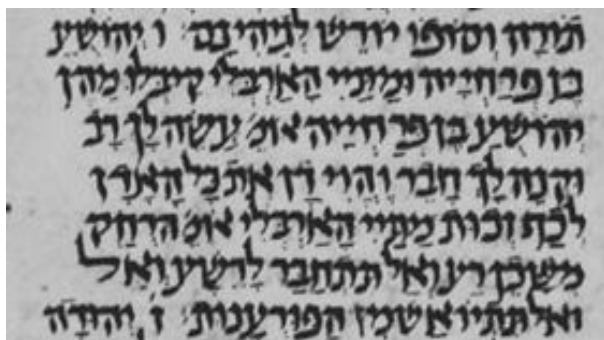 תורה וסופו יורש לגיהינם ו יהושע
בן פרחייה ומתיי הארבלי קיבלו מהן
יהושע בן פרחייה אומ' עשה לך רב
וקנה לך חבר והוי דן את כל האדן
לכף זכות מתיי הארבלי אומ' הרחק
משכן רע ואל תתחבר לרשע ואל
ואל תתייאש מן הפורענות ז יהודה